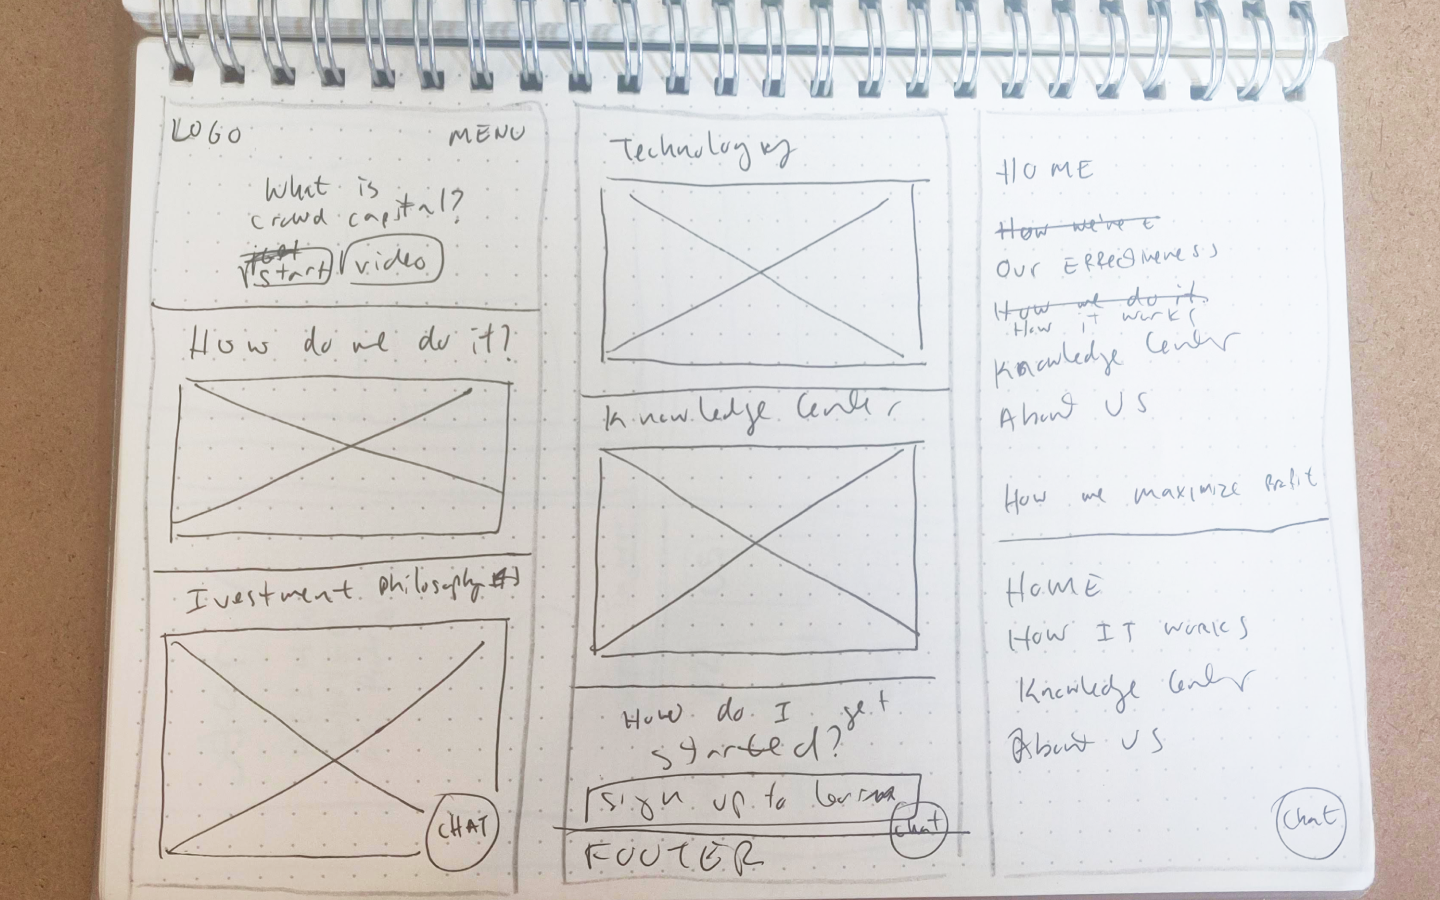 LOGO
MENU
What is
crowd capital?
start
video
How do we do it?
Ivestment philosophy
CHAT
Technology
Knowledge Center
How do I get
started?
sign up to learn
chat
FOOTER
HOME
How we're
Our Effectiveness
How we do it.
How it works
Knowledge Center
About US
How we maximize Profit
HOME
How IT works
Knowledge Center
About US
Chat